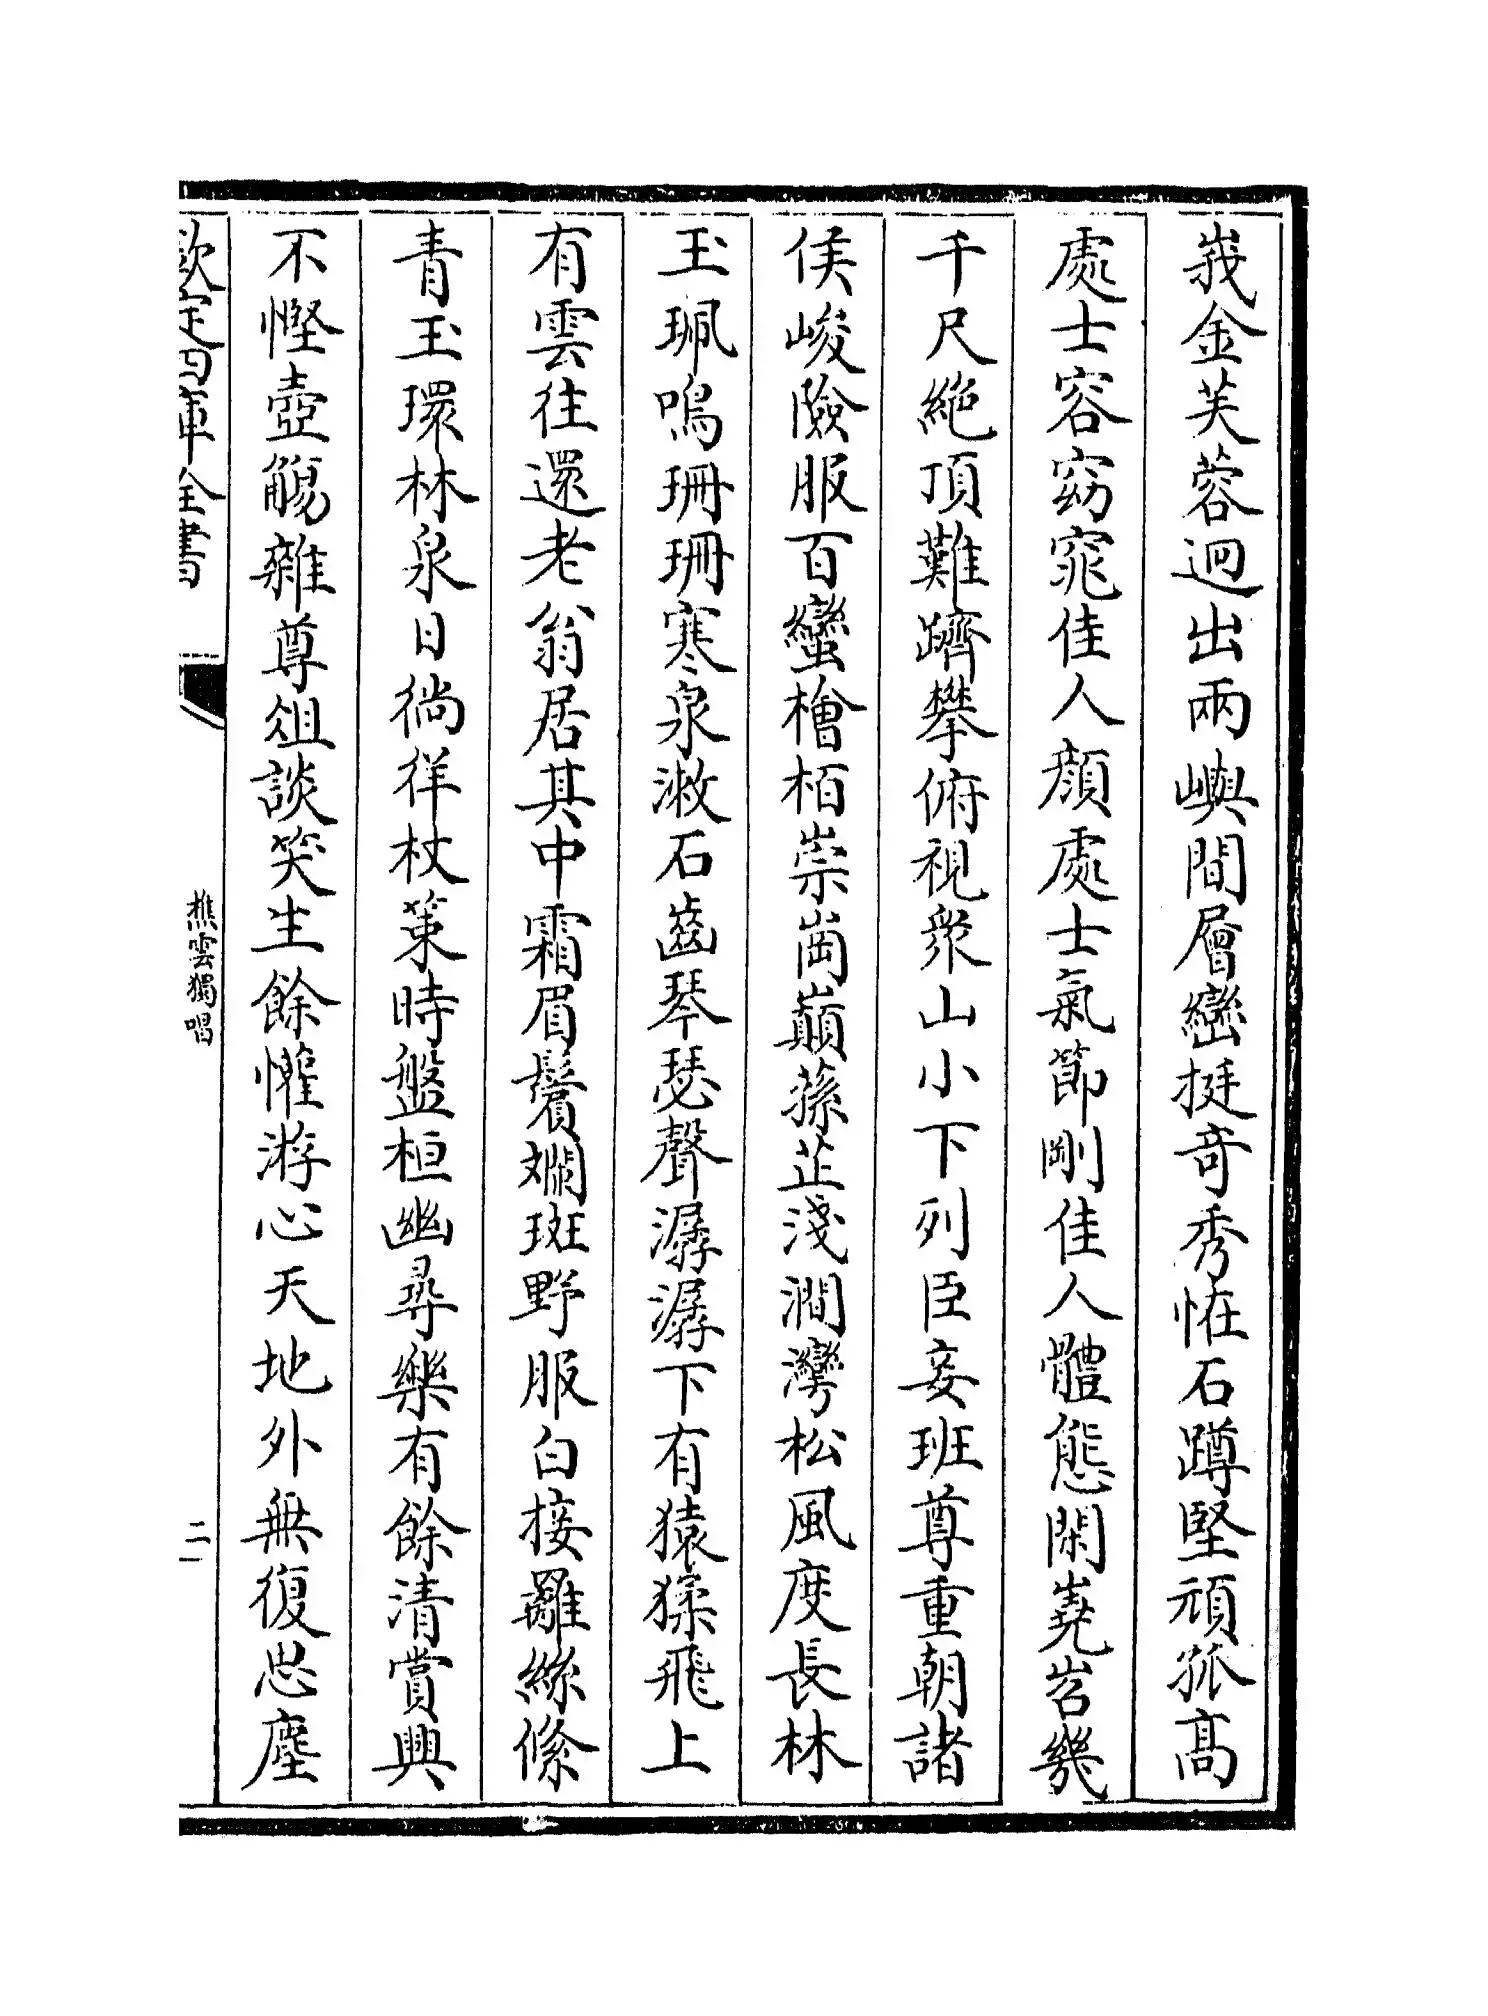 峩金芙蓉迥出兩嶼間層巒挺奇秀恠石蹲堅頑孤高
處士容窈窕佳人顔處士氣節剛佳人體態閑嶤岧幾
千尺絶頂難躋攀俯視衆山小下列臣妾班尊重朝諸
侯峻險服百蠻檜栢崇崗巔蓀芷淺澗灣松風度長林
玉珮鳴珊珊寒泉潄石齒琴瑟聲潺潺下有猿猱飛上
有雲往還老翁居其中霜眉鬢斕斑野服白接䍦絲絛
青玉環林泉日徜徉杖策時盤桓幽尋樂有餘清賞興
不慳壺觴雜尊俎談笑生餘懽游心天地外無復思塵
欽定四庫全書
樵雲獨唱
二